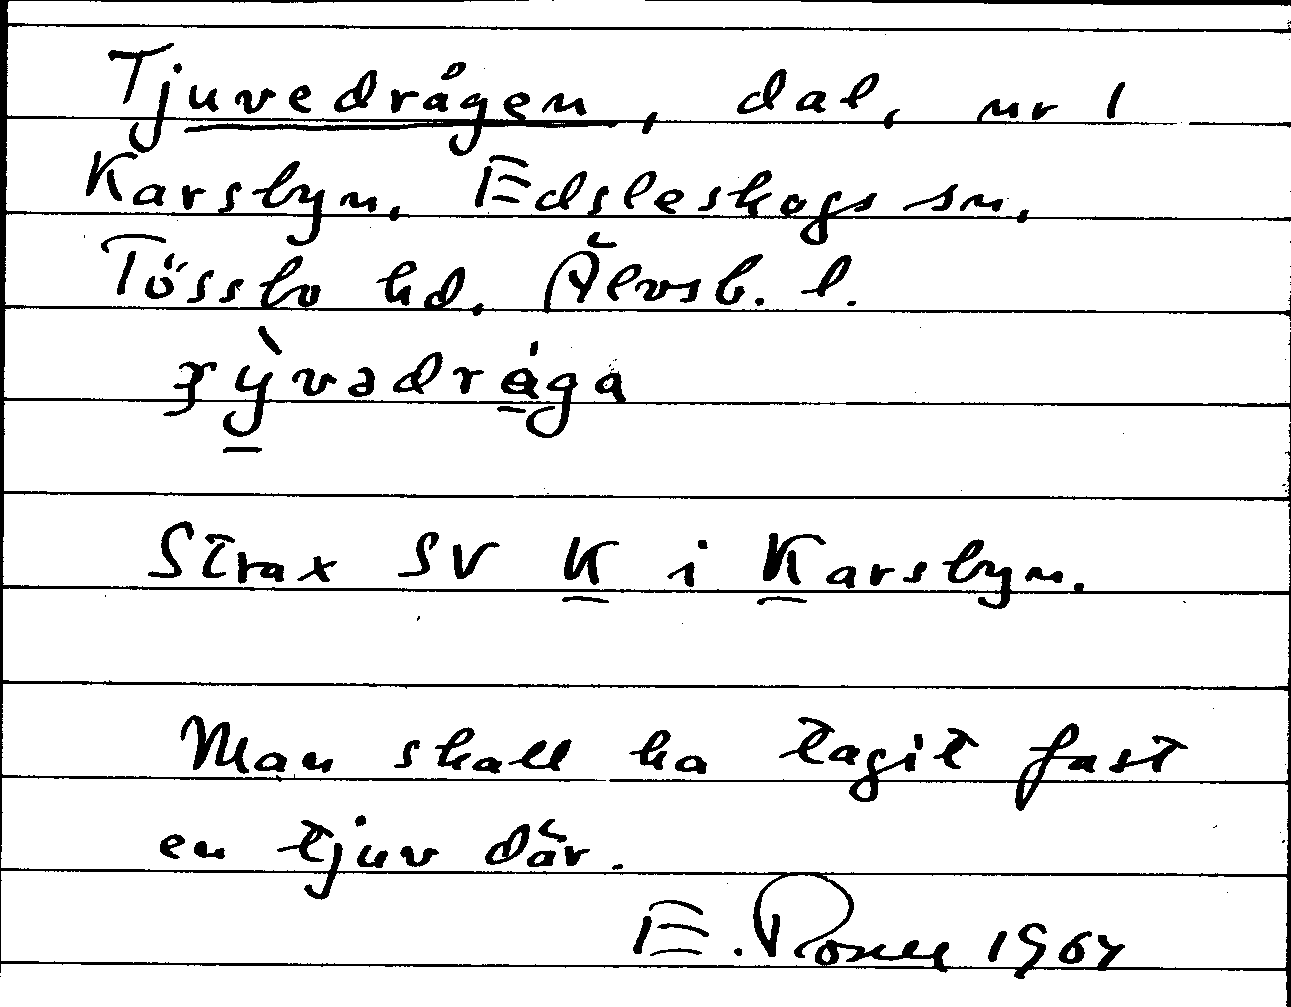 Tjuvedrågen, dal, nr 1
Karsbyn. Edsleskogs sn,
Tössbo hd, Älvsb. l.
Strax SV K i Karsbyn.
Man skall ha tagit fast
en tjuv där.
E.